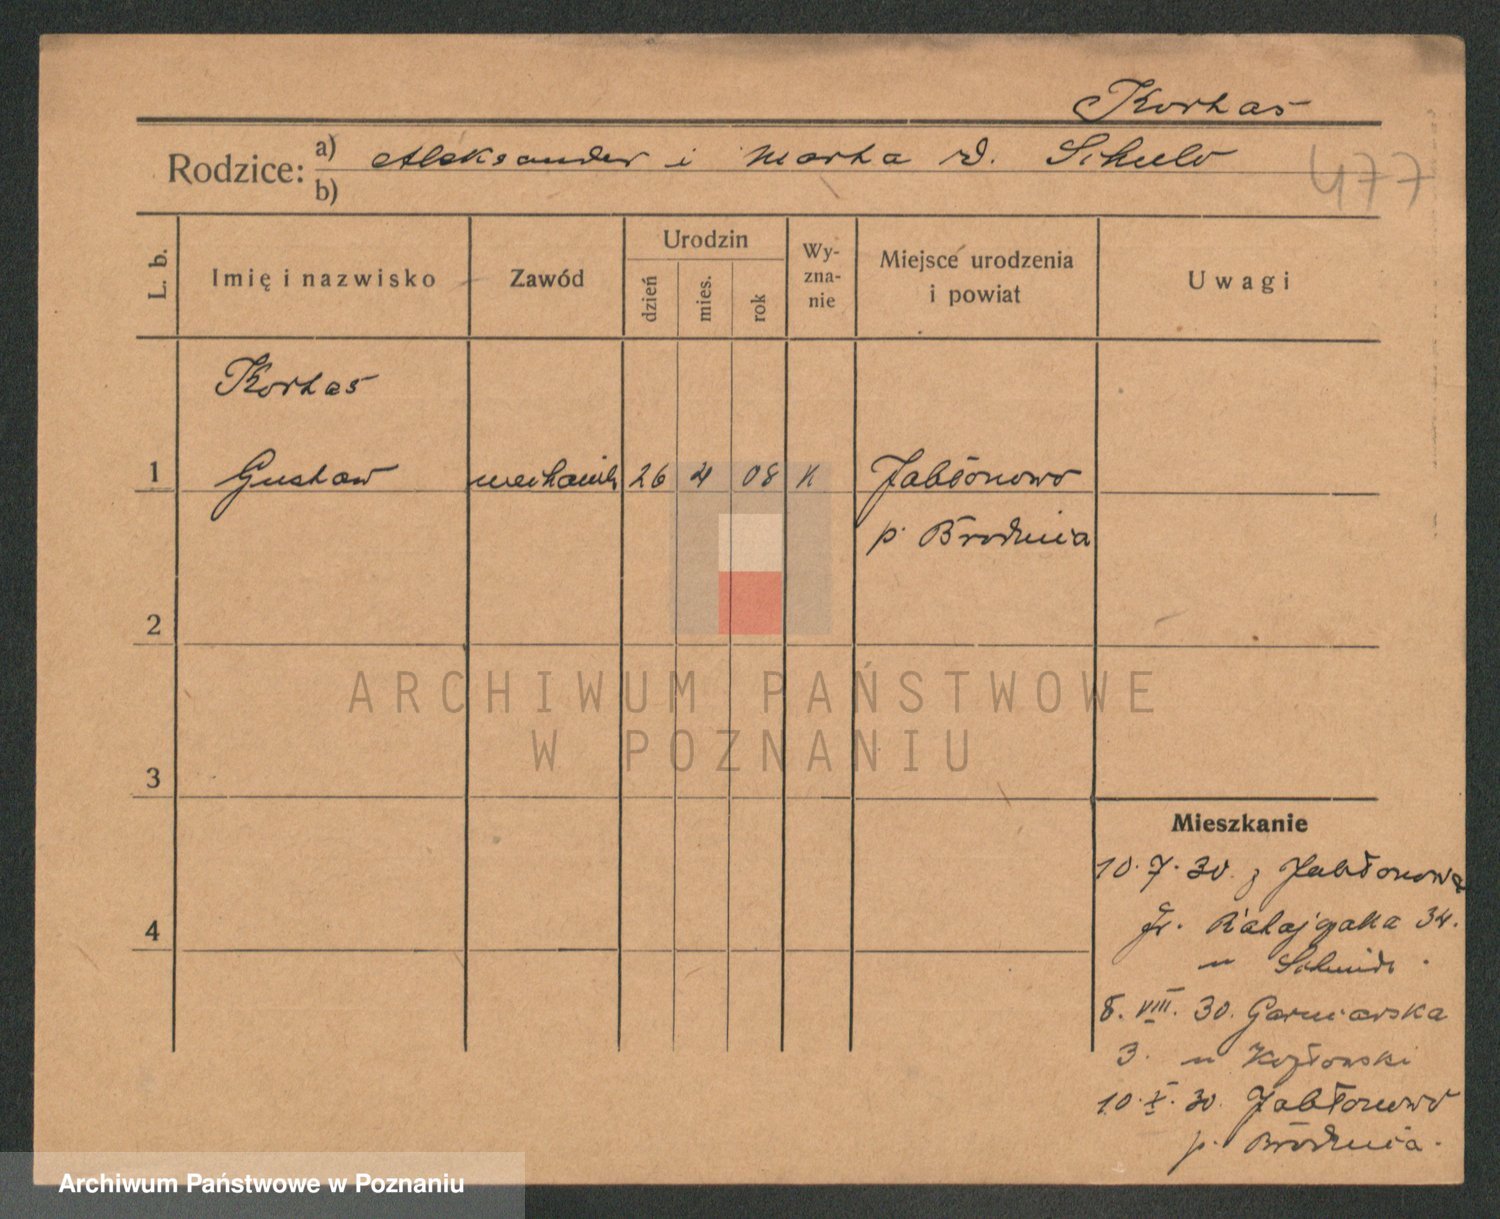 Korhas
Rodzice: a) Aleksander i Marta rd. Schulv
b)
477
L. b.
Imię i nazwisko
Zawód
Urodzin
dzień
mies.
rok
Wy-
zna-
nie
Miejsce urodzenia
i powiat
Uwagi
Korhas
1 Gustaw mechanik 26 4 08 K Jabłonowo
p. Brodnica
2
ARCHIWUM PAŃSTWOWE
W POZNANIU
3
Mieszkanie
10. 7. 30. z Jabłonowa
Fr. Ratajczaka 34.
u Schmidt
4
8. VIII. 30. Garncarska
3. u Kozłowski
10. X. 30. Jabłonowo
p. Brodnica.
Archiwum Państwowe w Poznaniu